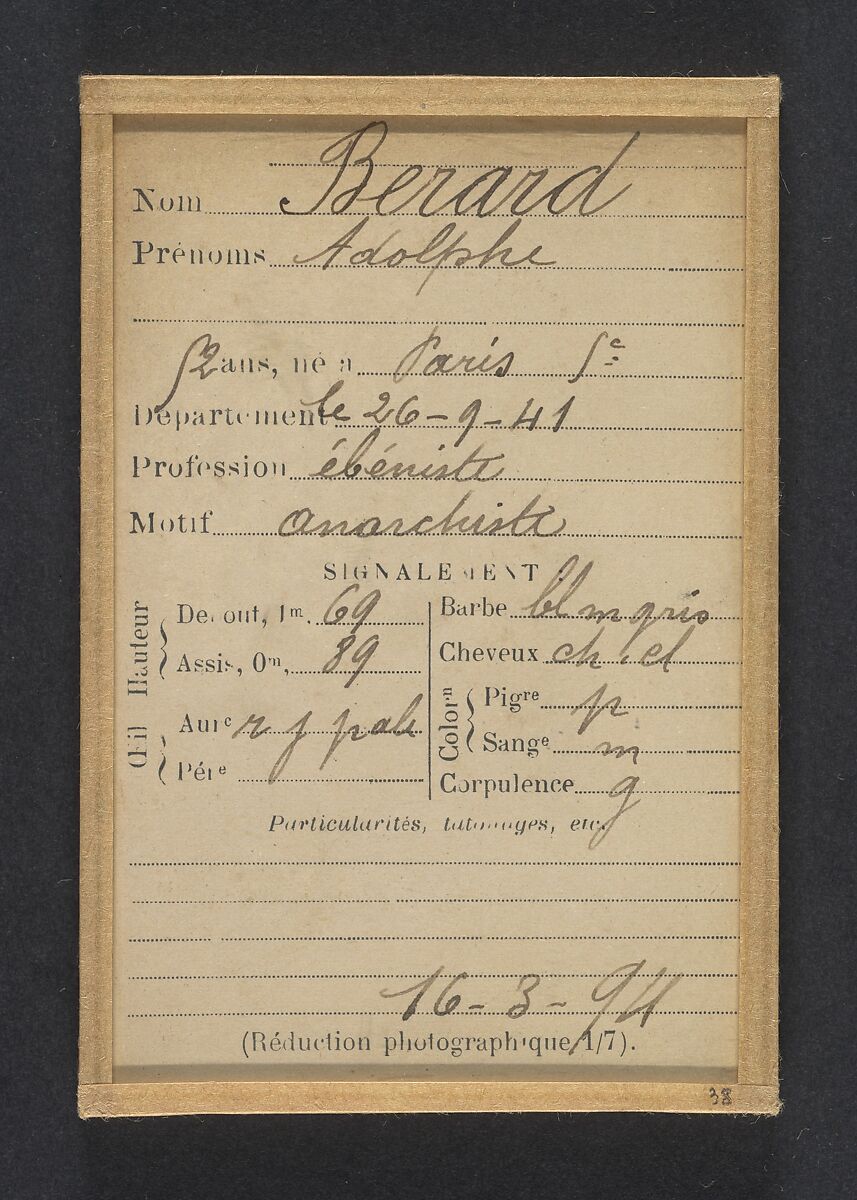 Nom Berard
Prénoms Adolphe
52 ans, né à Paris Sᵉ
Département le 26-9-41
Profession ébéniste
Motif anarchiste
SIGNALEMENT
Hauteur
Debout, 1ᵐ. 69
Assis, 0ᵐ, 89
Œil
Aurᵉ r j pale
Périᵉ
Barbe bl m gris
Cheveux ch. cl
Colorⁿ
Pigʳᵉ p
Sangᵉ m
Corpulence g
Particularités, tatouages, etc.
16-3-94
(Réduction photographique 1/7).
38